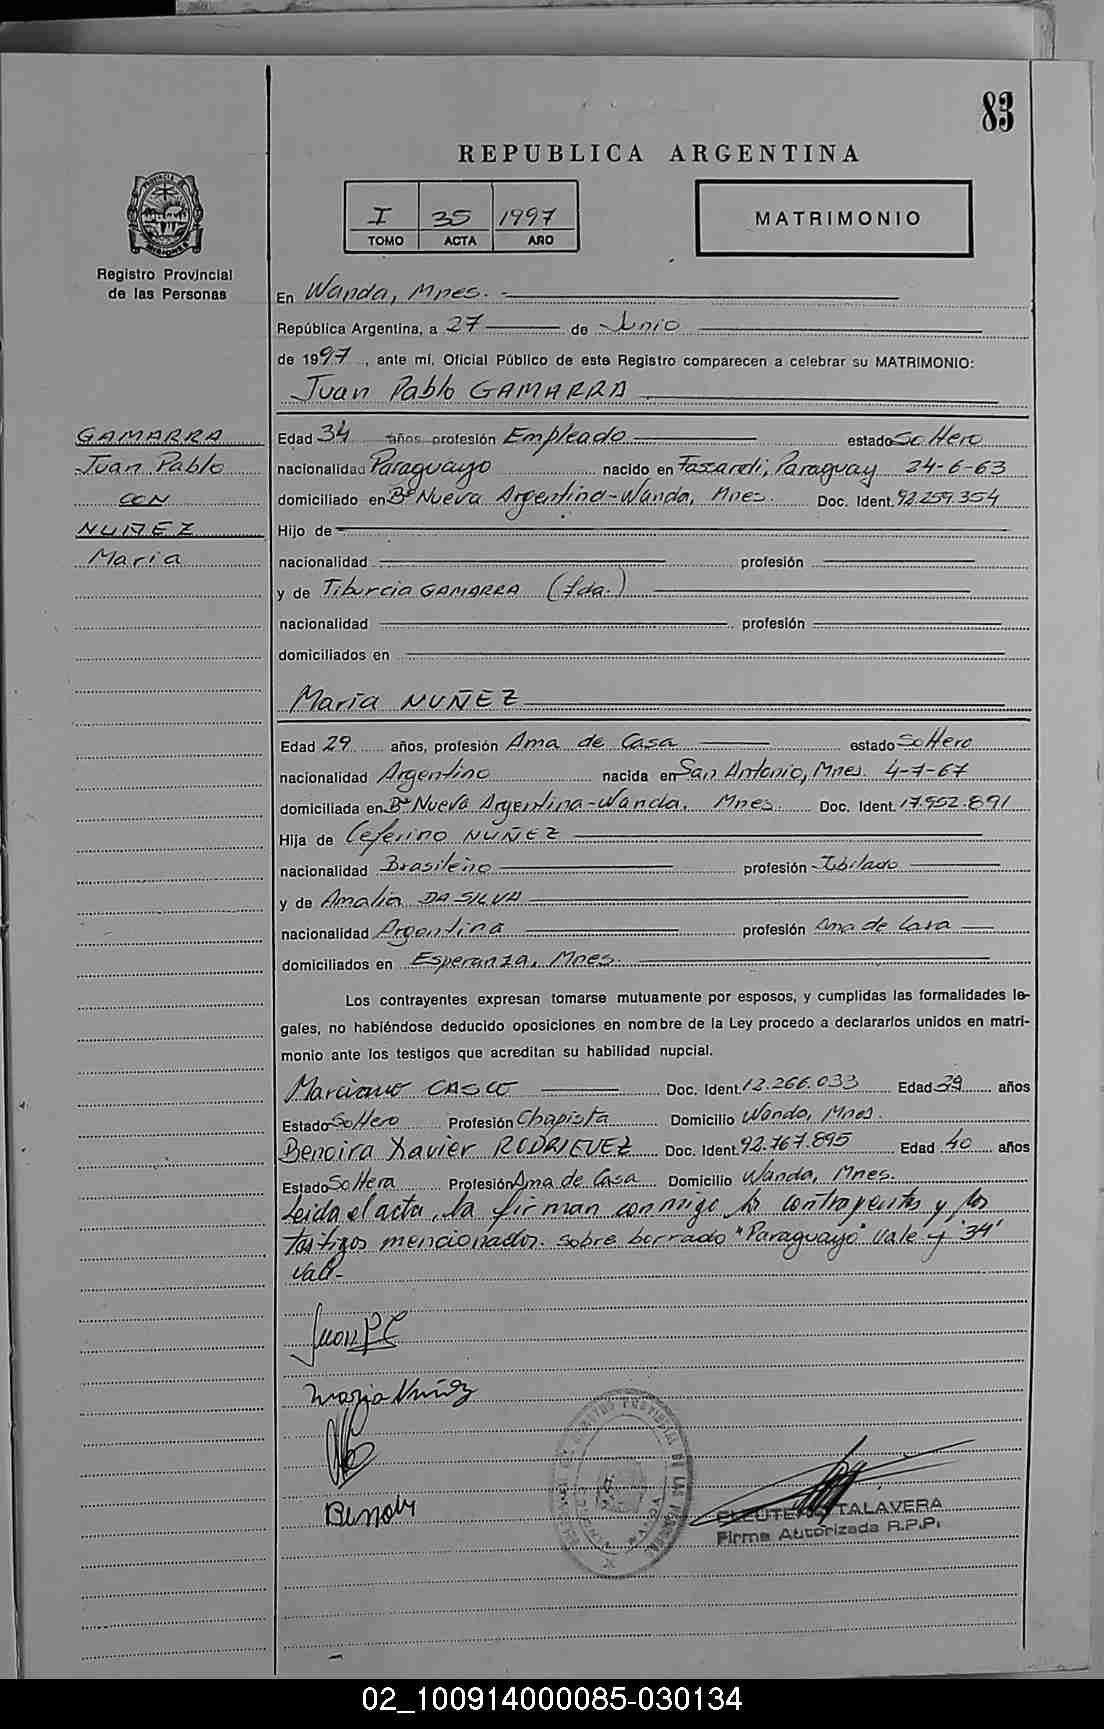 83
REPUBLICA ARGENTINA
I 35 1997
TOMO ACTA AÑO
MATRIMONIO
PROVINCIA DE MISIONES
Registro Provincial
de las Personas
En Wanda, Mnes.
República Argentina, a 27 de Junio
de 1997, ante mí, Oficial Público de este Registro comparecen a celebrar su MATRIMONIO:
Juan Pablo GAMARRA
GAMARRA
Juan Pablo
CON
NUÑEZ
Maria
Edad 34 años profesión Empleado estado Soltero
nacionalidad Paraguayo nacido en Paraguay 24-6-63
domiciliado en Bº Nueva Argentina-Wanda, Mnes. Doc. Ident. 92.259.354
Hijo de
nacionalidad profesión
y de Tiburcia GAMARRA (fda.)
nacionalidad profesión
domiciliados en
Maria NUÑEZ
Edad 29 años, profesión Ama de Casa estado Soltero
nacionalidad Argentino nacida en San Antonio, Mnes. 4-7-67
domiciliada en Bº Nueva Argentina-Wanda, Mnes. Doc. Ident. 17.952.891
Hija de Ceferino NUÑEZ
nacionalidad Brasileño profesión Jubilado
y de Amalia DA SILVA
nacionalidad Argentina profesión Ama de Casa
domiciliados en Esperanza, Mnes.
Los contrayentes expresan tomarse mutuamente por esposos, y cumplidas las formalidades le-
gales, no habiéndose deducido oposiciones en nombre de la Ley procedo a declararlos unidos en matri-
monio ante los testigos que acreditan su habilidad nupcial.
Marciano CASCO Doc. Ident. 12.266.033 Edad 39 años
Estado Soltero Profesión Chapista Domicilio Wanda, Mnes.
Benoira Xavier RODRIGUEZ Doc. Ident. 92.767.895 Edad 40 años
Estado Soltera Profesión Ama de Casa Domicilio Wanda, Mnes.
Leida el acta, la firman conmigo los contrayentes y los
testigos mencionados. Sobre borrado "Paraguayo" Vale y "34"
Vale-
Juan P G
Maria Nuñez
ELEUTERIO TALAVERA
Firma Autorizada R.P.P.
02_100914000085-030134